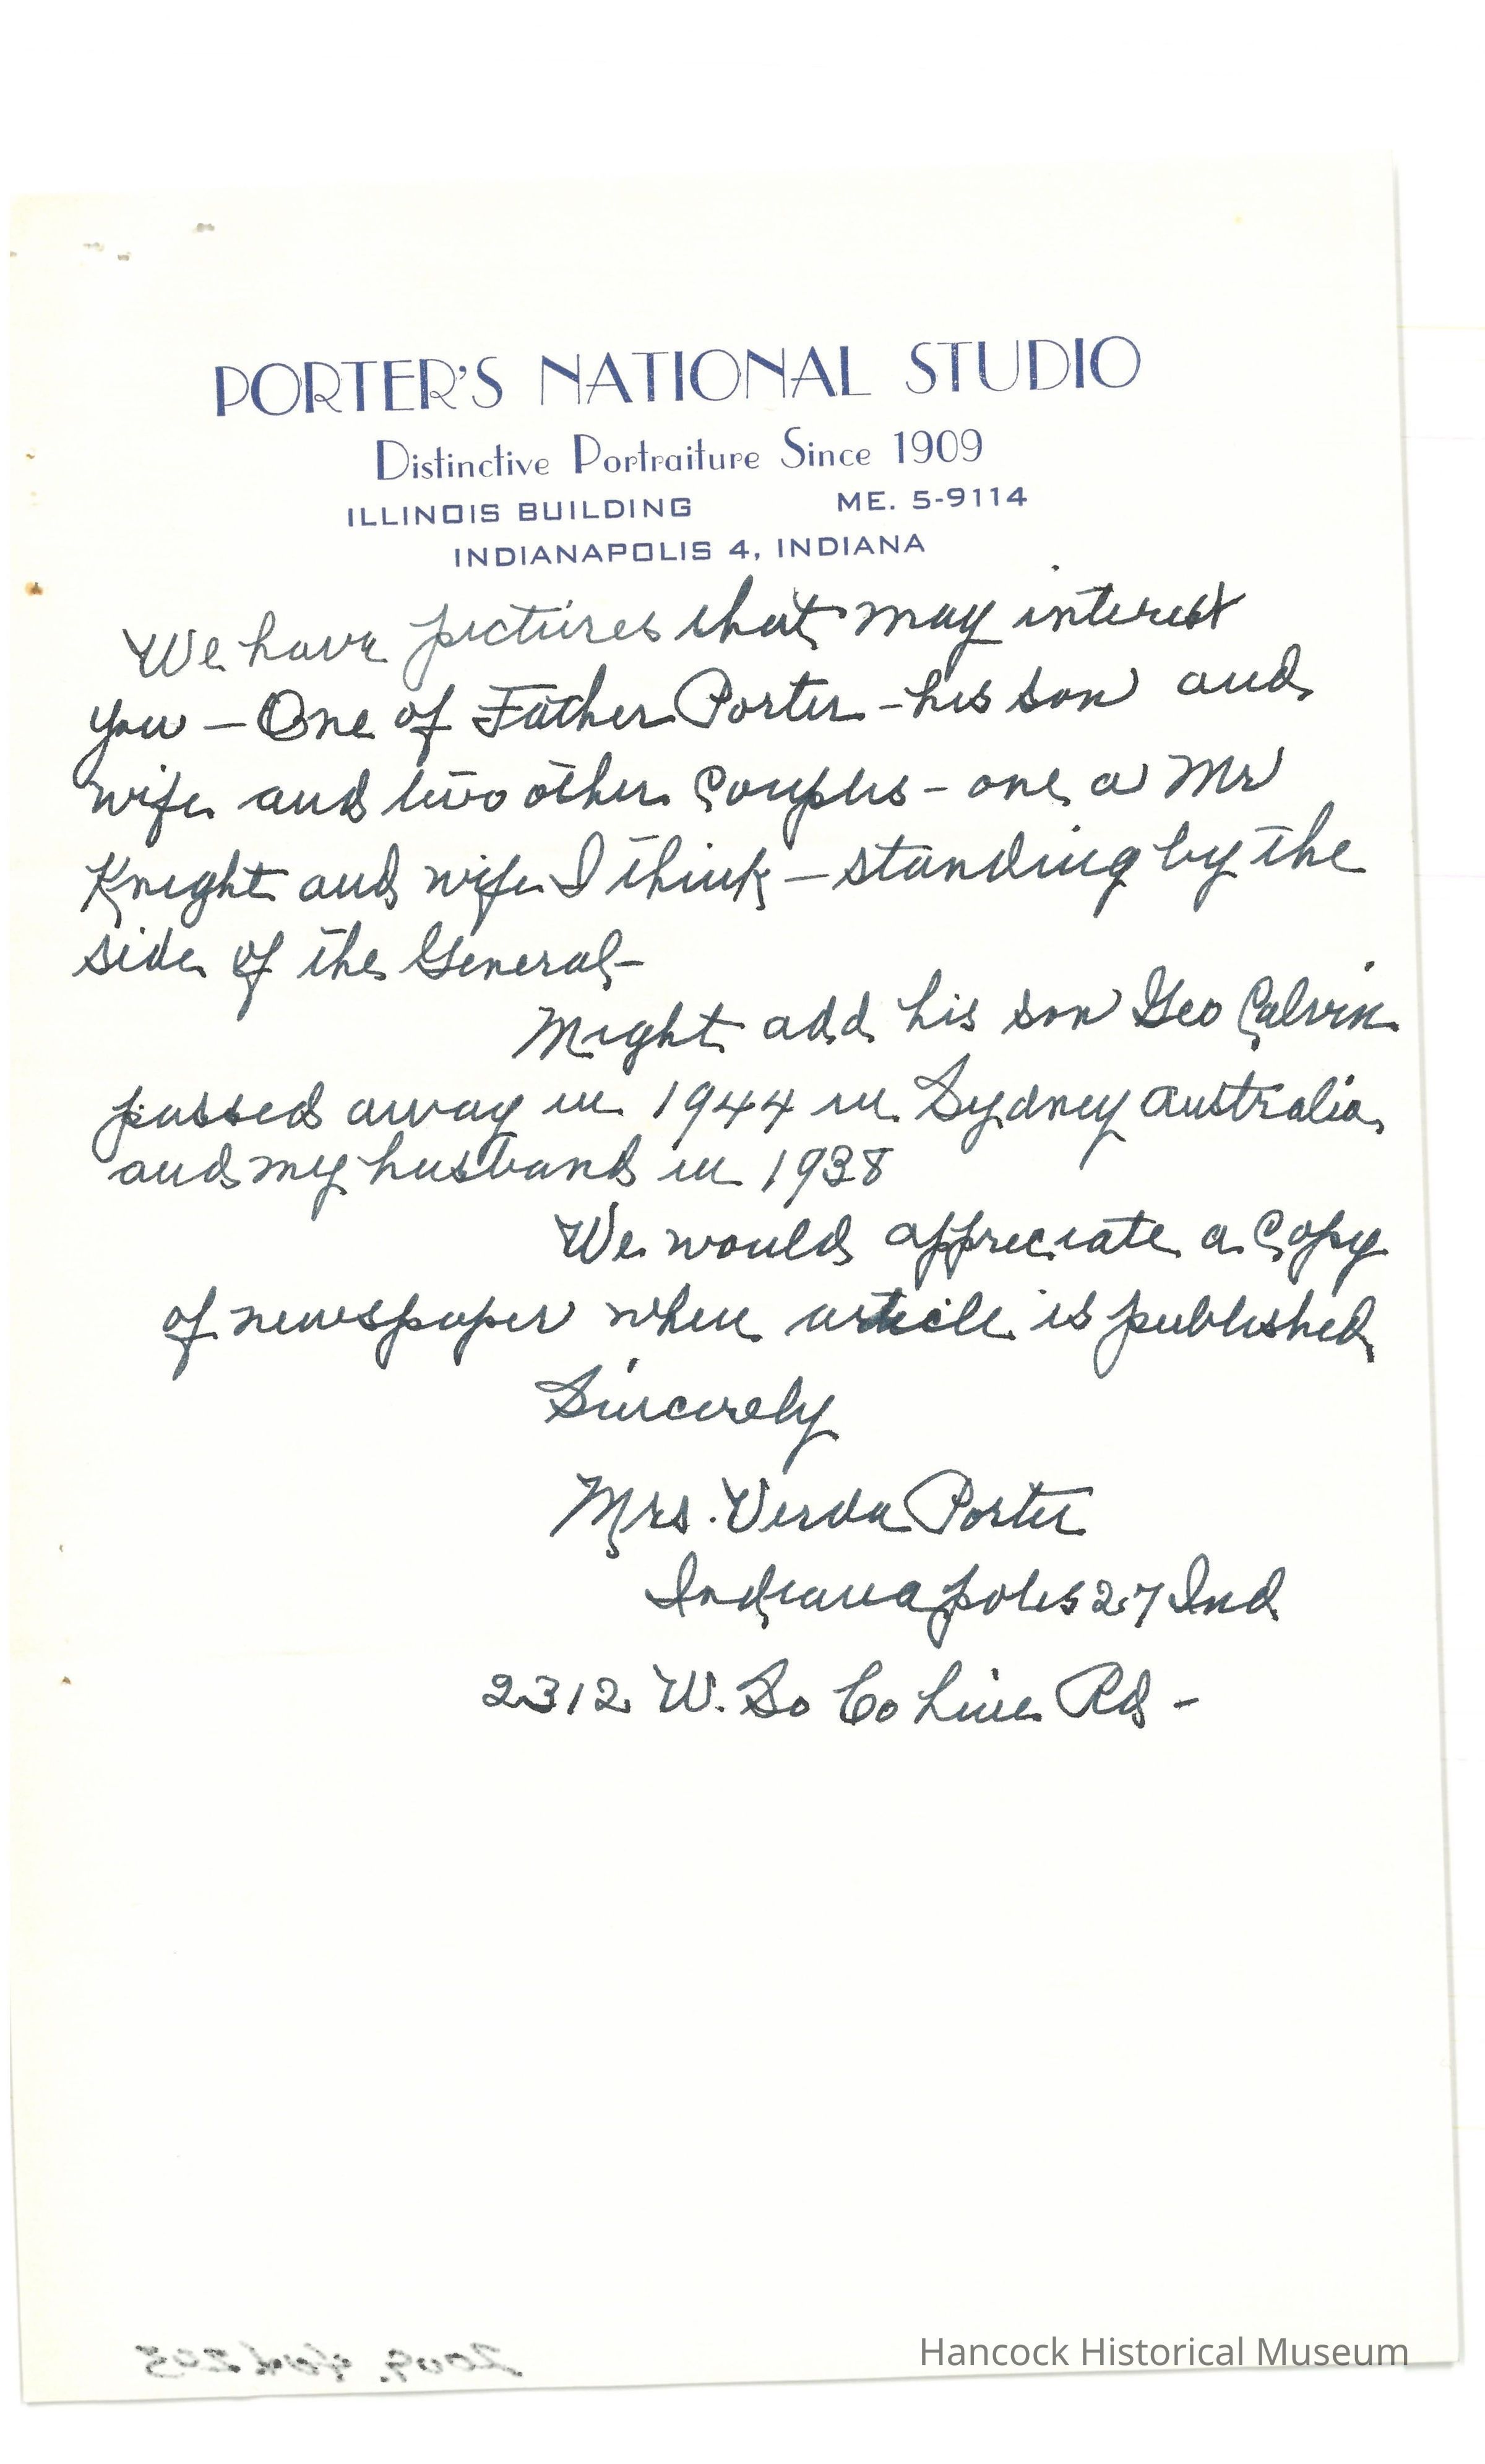 PORTER'S NATIONAL STUDIO
Distinctive Portraiture Since 1909
ILLINOIS BUILDING ME. 5-9114
INDIANAPOLIS 4, INDIANA
We have pictures that may interest
you – One of Father Porter – his son and
wife and two other Couples – one a Mr
Knight and wife I think – standing by the
side of the General –
Might add his son Geo Calvin
passed away in 1944 in Sydney Australia
and my husband in 1938
We would appreciate a Copy
of newspaper when article is published
Sincerely
Mrs. Verda Porter
Indianapolis 27 Ind
2312 W. So Co Line Rd –
Hancock Historical Museum